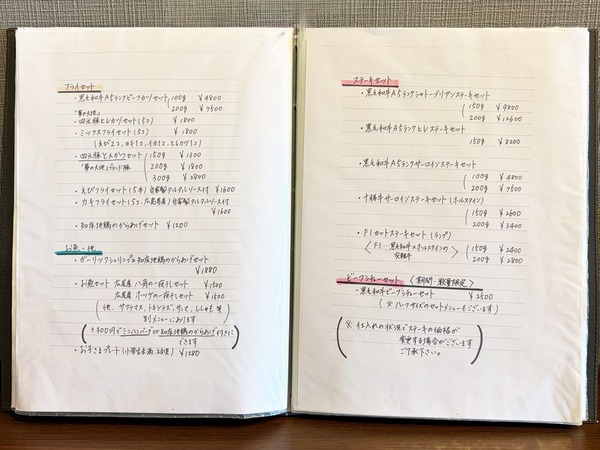 フライセット
・黒毛和牛A5ランクビーフカツセット 100g ¥4800
200g ¥7500
「夢の大地」
・四元豚ヒレカツセット(5コ) ¥1800
・ミックスフライセット(5コ) ¥1800
(えび2コ、カキ1コ、イカ1コ、ヒレカツ1コ)
・四元豚とんかつセット 150g ¥1800
「夢の大地」ブランド豚 200g ¥1800
300g ¥2800
・えびフライセット(5本)自家製タルタルソース付 ¥1600
・カキフライセット(5コ、広島県産)自家製タルタルソース付
¥1600
・知床地鶏のからあげセット ¥1200
お魚・他
・ガーリックシュリンプ&知床地鶏のからあげセット
¥1880
・お魚セット 広尾産 八角の一夜干しセット ¥1500
広尾産 ホッケの一夜干しセット ¥1500
(他、サクラマス、トキシラズ、サンマ、ししゃも等
別メニューにあります)
(+300円でミニハンバーグor知床地鶏のからあげ付きに
できます)
・お子さまプレート(小学生未満・幼児) ¥1280
ステーキセット
・黒毛和牛A5ランクシャトーブリアンステーキセット
150g ¥9800
200g ¥12600
・黒毛和牛A5ランクヒレステーキセット
150g ¥8200
・黒毛和牛A5ランクサーロインステーキセット
100g ¥4800
200g ¥7500
・十勝牛サーロインステーキセット(ホルスタイン)
150g ¥2600
200g ¥3400
・F1カットステーキセット(ランプ)
〈F1…黒毛和牛×ホルスタインの 150g ¥2400
交雑牛〉 200g ¥2800
ビーフシチューセット 〈期間・数量限定〉
・黒毛和牛ビーフシチューセット ¥2500
(※ハーフサイズのセットメニューもございます)
(※仕入れの状況でステーキの価格が
変更する場合がございます
ご了承下さい。)